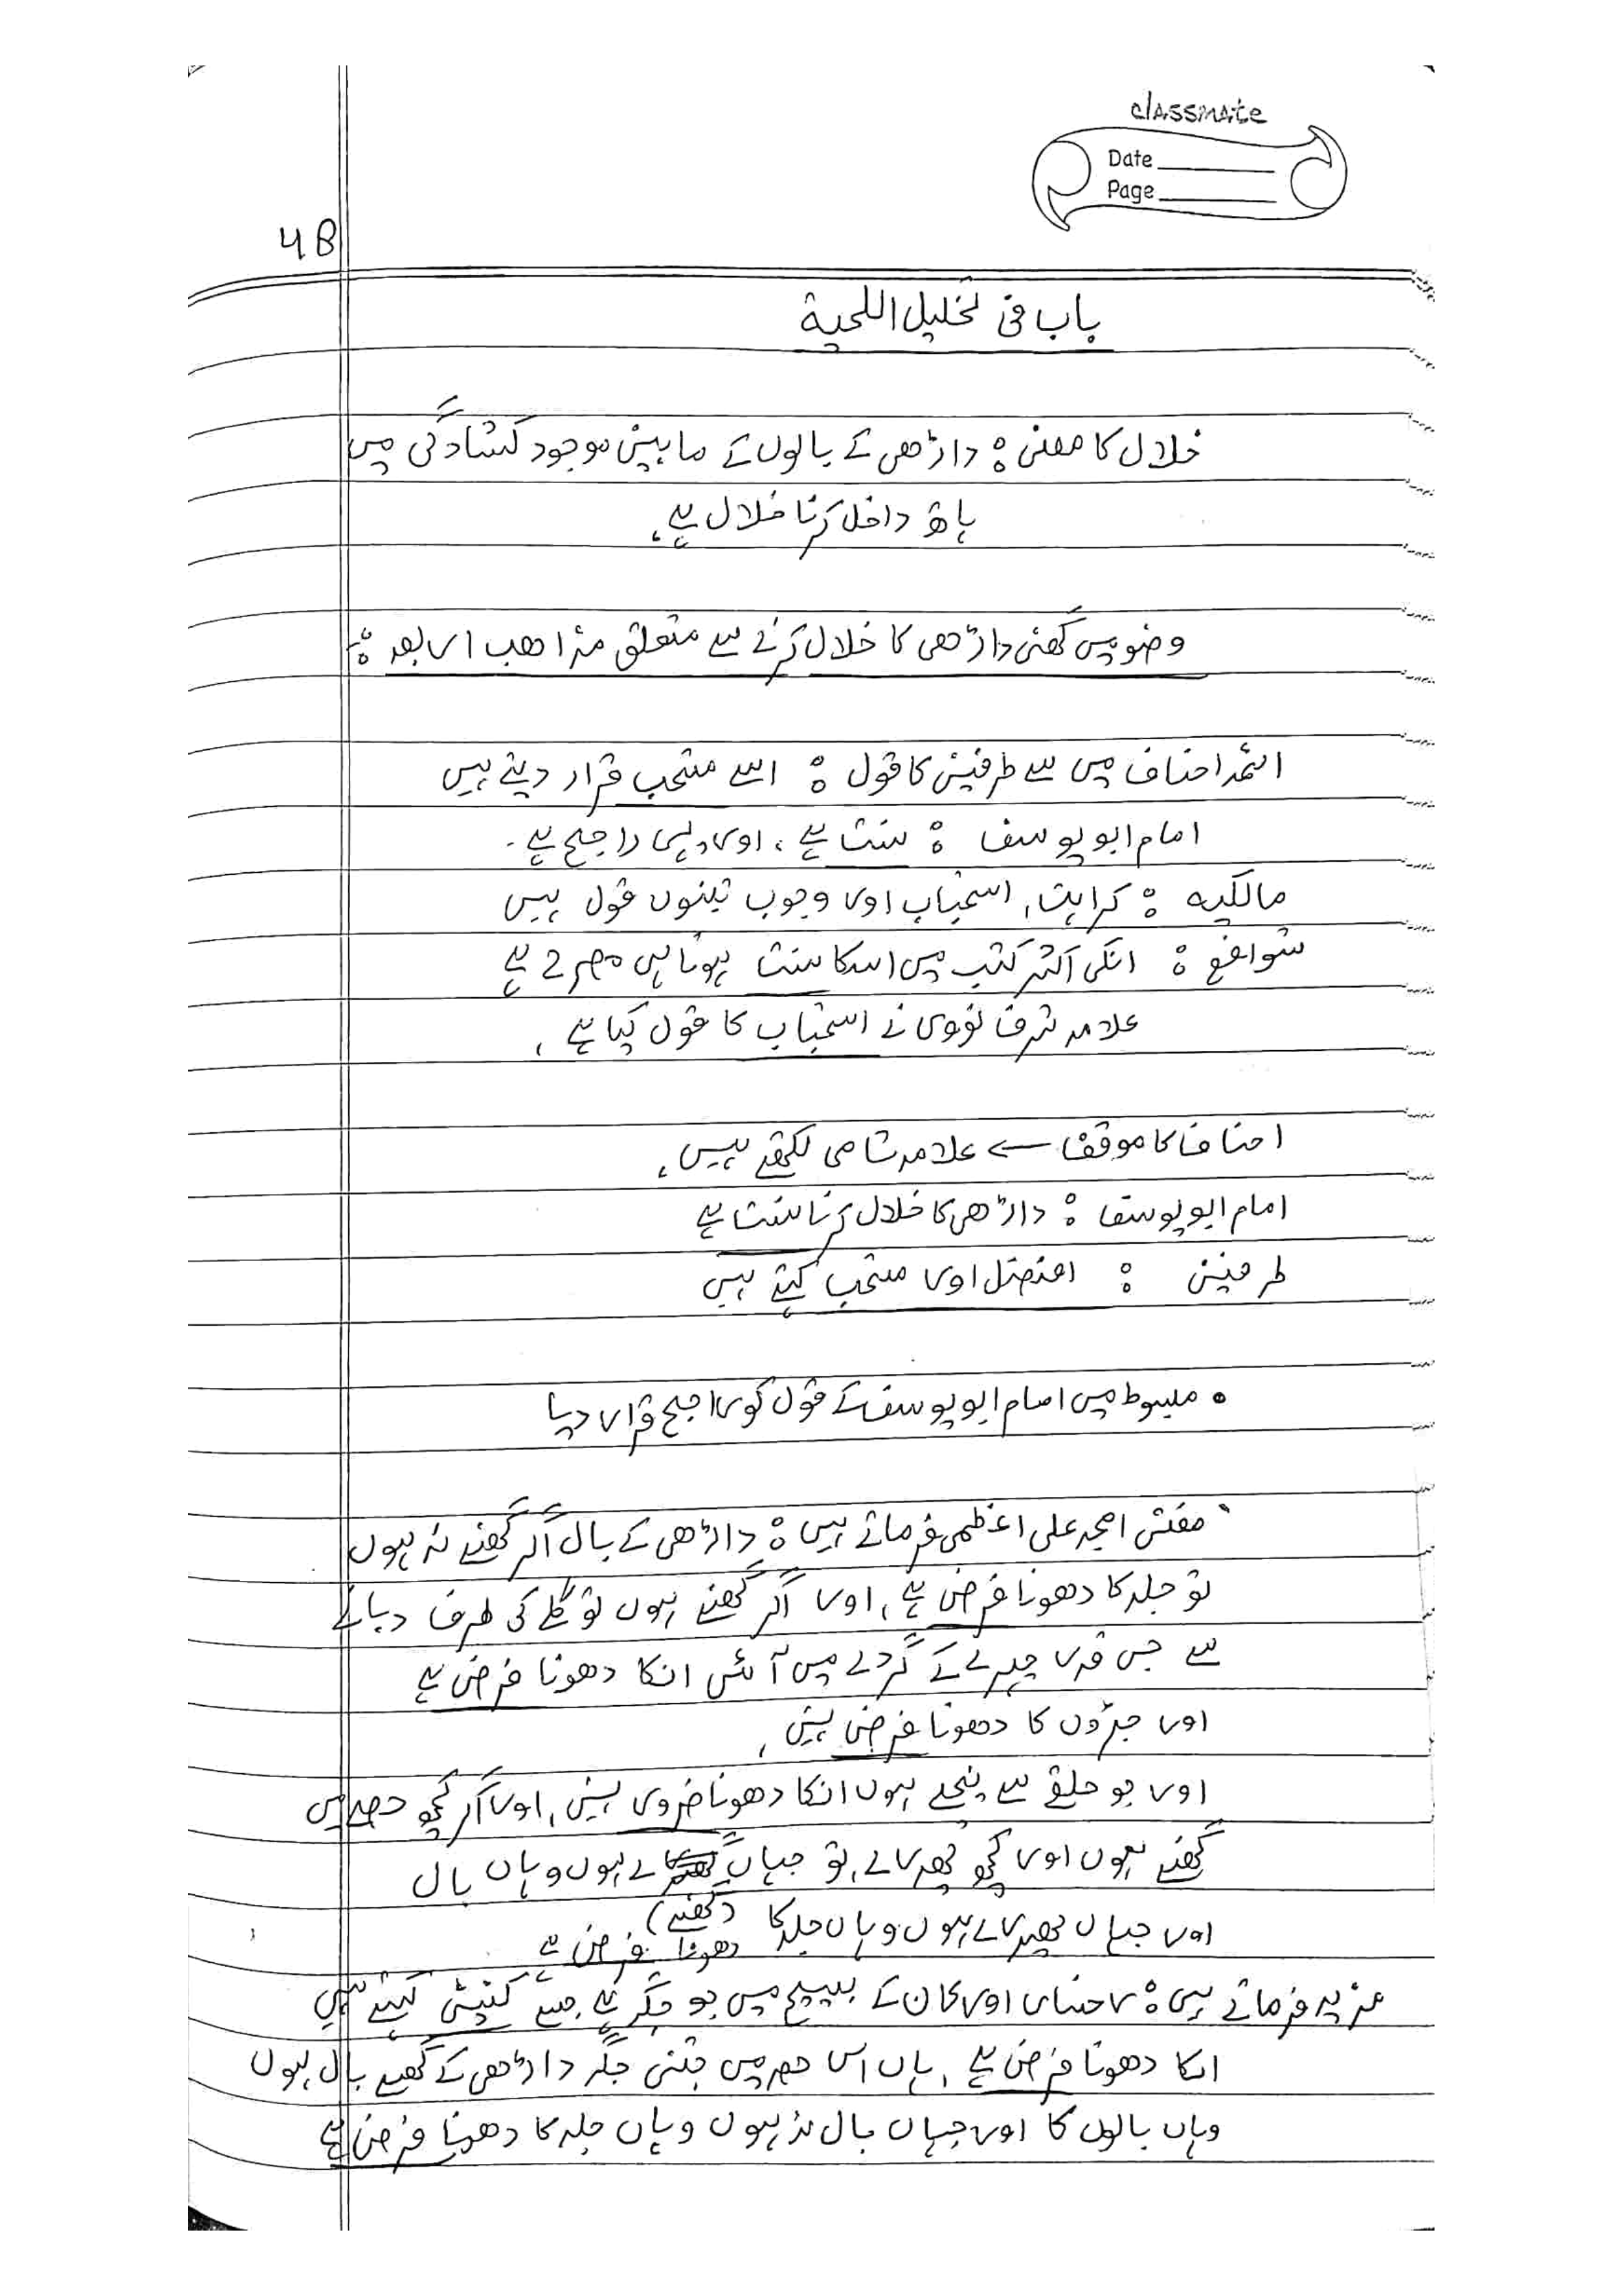 classmate
Date
Page
48
باب فی تخلیل اللحیة
خلال کا معنی : داڑھی کے بالوں کے مابین موجود کشادگی میں
ہاتھ داخل کرنا خلال ہے،
وضو میں گھنی داڑھی کا خلال کرنے سے متعلق مذاھب اربعہ :
ائمہ احناف میں سے طرفین کا قول : اسے مستحب قرار دیتے ہیں
امام ابو یوسف : سنت ہے، اور یہی راجح ہے۔
مالکیہ : کراہت، استحباب اور وجوب تینوں قول ہیں
شوافع : انکی اکثر کتب میں اسکا سنت ہونا ہی مصرح ہے
علامہ شرف نووی نے استحباب کا قول کیا ہے،
احناف کا موقف ← علامہ شامی لکھتے ہیں،
امام ابو یوسف : داڑھی کا خلال کرنا سنت ہے
طرفین : افضل اور مستحب کہتے ہیں
• مبسوط میں امام ابو یوسف کے قول کو راجح قرار دیا
• مفتی امجد علی اعظمی فرماتے ہیں : داڑھی کے بال اگر گھنے نہ ہوں
تو جلد کا دھونا فرض ہے، اور اگر گھنے ہوں تو گلے کی طرف دبانے
سے جس قدر چہرے کے گردے میں آئیں انکا دھونا فرض ہے
اور جڑوں کا دھونا فرض نہیں،
اور جو حلقے سے نیچے ہوں انکا دھونا ضروری نہیں، اور اگر کچھ حصہ میں
گھنے ہوں اور کچھ چھدرے، تو جہاں گھنے ہوں وہاں بال
(گھنے)
اور جہاں چھدرے ہوں وہاں جلد کا دھونا فرض ہے
مزید فرماتے ہیں : رخسار اور کان کے بیچ میں جو جگہ ہے جسے کنپٹی کہتے ہیں
اسکا دھونا فرض ہے، ہاں اس حصہ میں جتنی جگہ داڑھی کے گھنے بال ہوں
وہاں بالوں کا اور جہاں بال نہ ہوں وہاں جلد کا دھونا فرض ہے